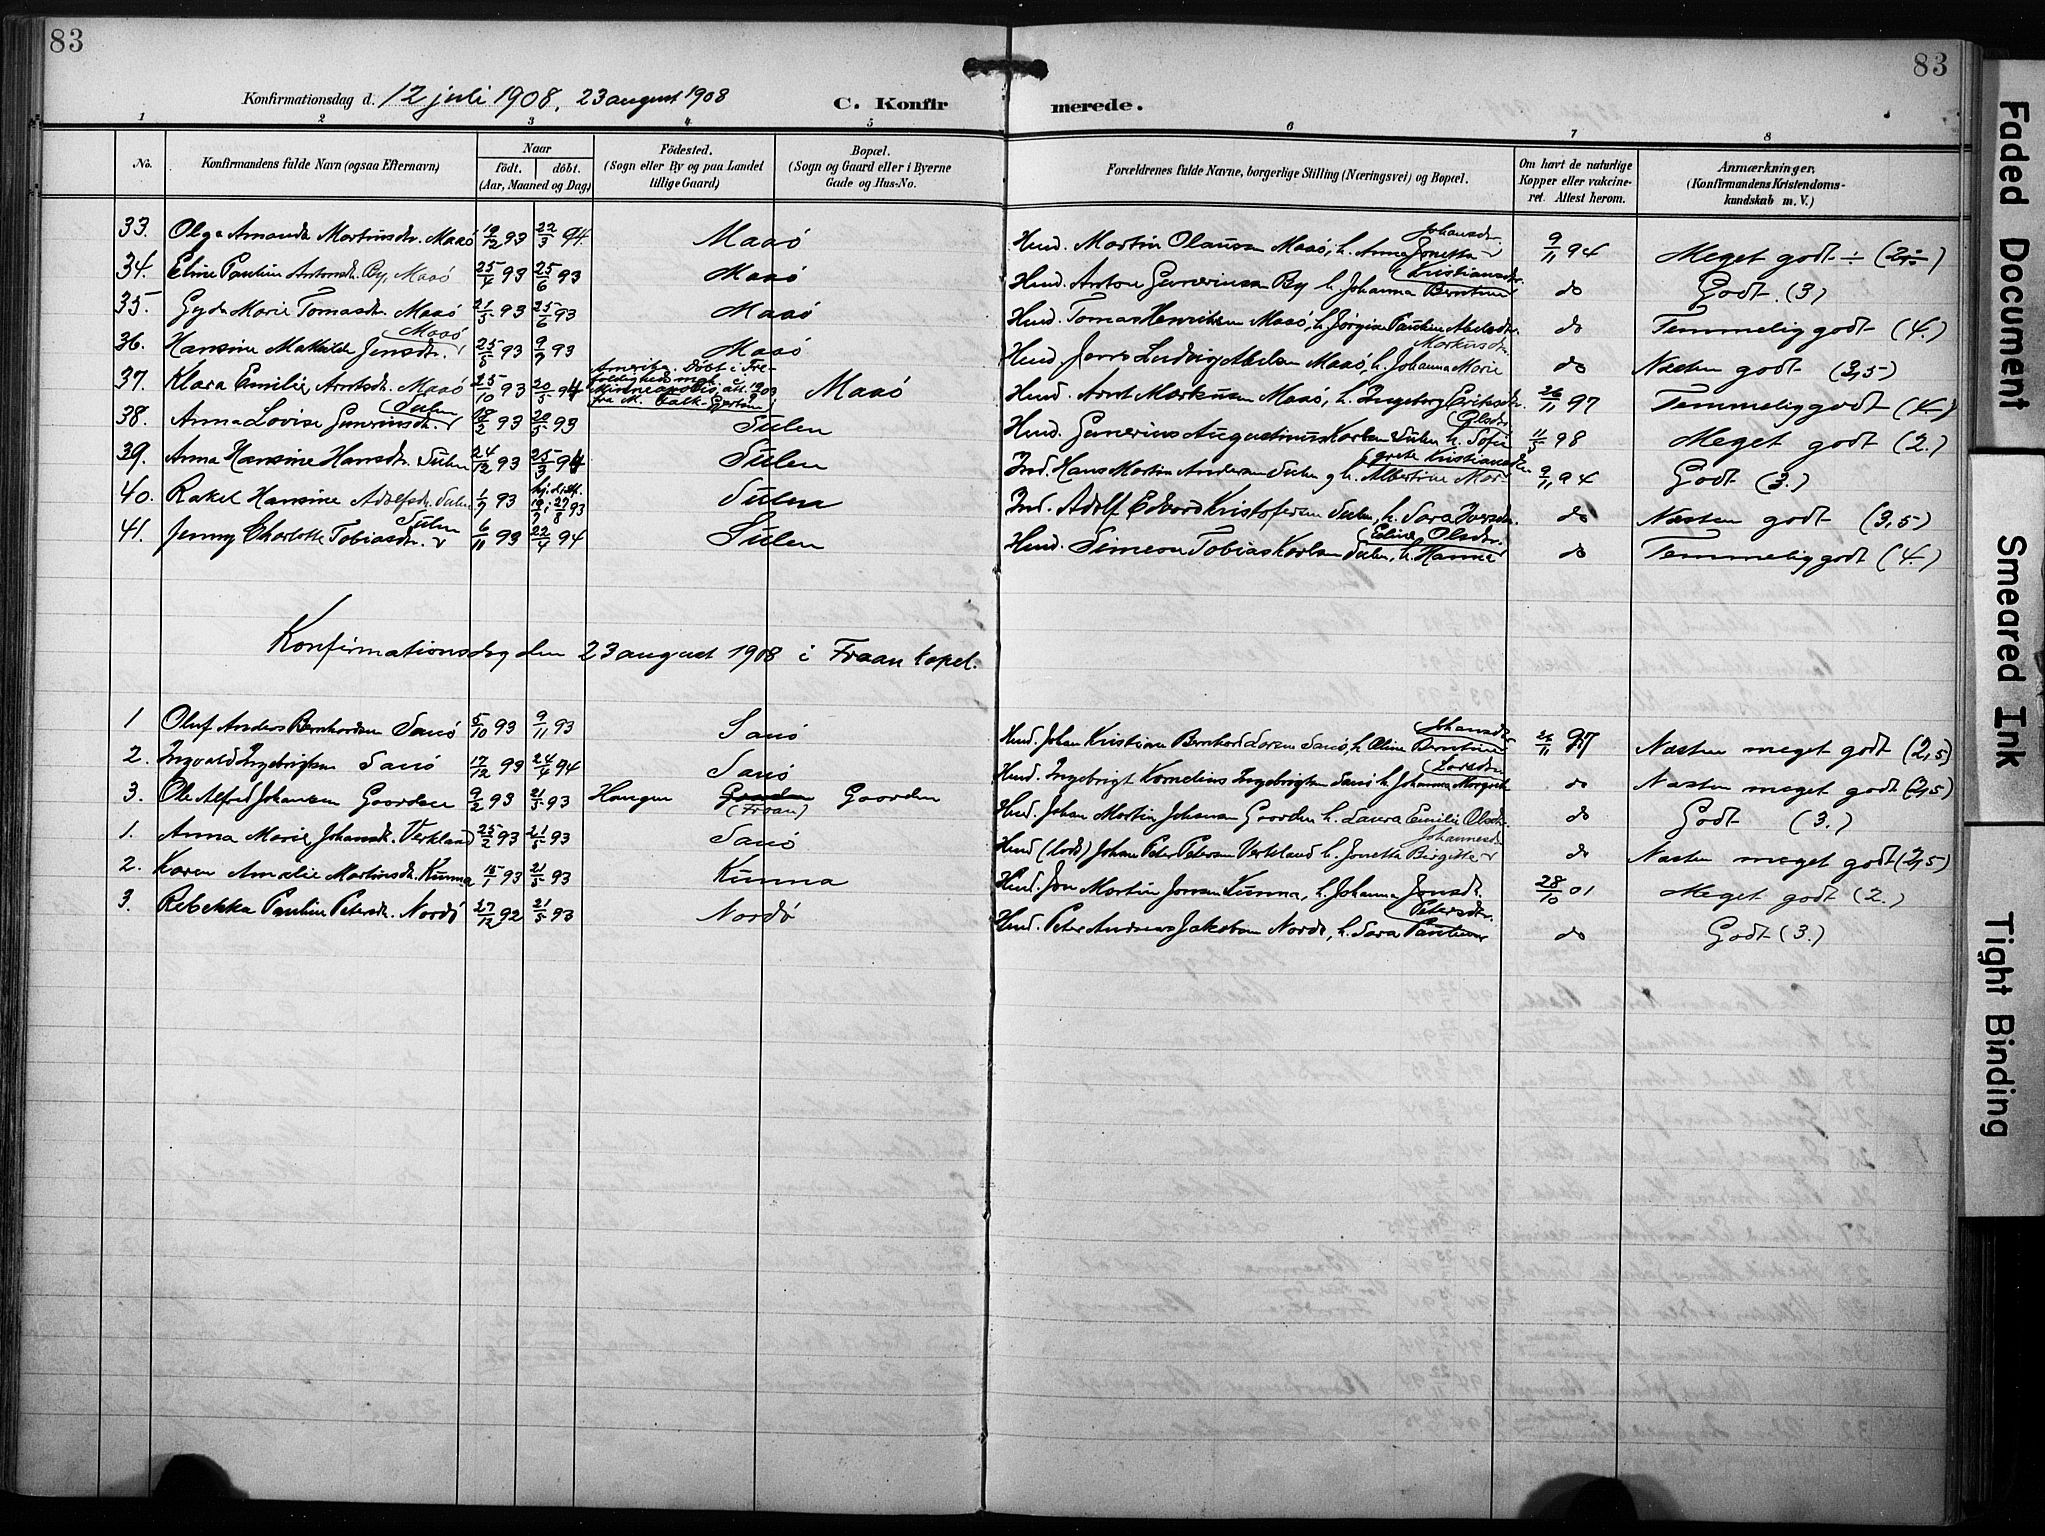 83
83
Konfirmationsdag d. 12 juli 1908, 23 august 1908
C. Konfirmerede.
1 2 3 4 5 6 7 8
No.
Konfirmandens fulde Navn (ogsaa Efternavn)
Naar
födt. döbt.
(Aar, Maaned og Dag)
Födested.
(Sogn eller By og paa Landet
tillige Gaard)
Bopæl.
(Sogn og Gaard eller i Byerne
Gade og Hus-No.
Forældrenes fulde Navne, borgerlige Stilling (Næringsvei) og Bopæl.
Om havt de naturlige
Kopper eller vakcine-
ret. Attest herom.
Anmærkninger.
(Konfirmandens Kristendoms-
kundskab m. V.)
33. Olga Amanda Martinsdtr. Maasö 19/12 93 22/3 94. Maasö Husd. Martin Olausen Maasö, h. Anna Jonetta Johansdtr. 9/11 94 Meget godt ÷ (2,÷)
34. Eline Pauline Antonsdt. By, Maasö 25/4 93 25/6 93 Maasö Husd. Anton Gunerinsen By h. Johanna Berntine Kristiansdtr. do Godt. (3)
35. Gyda Marie Tomasdt. Maasö 21/5 93 25/6 93 Maasö Husd. Tomas Henriksen Maasö, h. Jørgine Pauline Abelsdtr. do Temmelig godt (4.)
36. Hansine Mathilde Jensdtr. Maasö 25/5 93 9/7 93 Maasö Husd. Jens Ludvig Abelsen Maasö, h. Johanna Marie Markusdtr. do Næsten godt (3,5)
37. Klara Emilie Arntsdt. Maasö 25/10 93 20/5 94 Amerika. Döbt i Tre-
foldigheds mgh.
Minneapolis, att. 1903
fra M. Falk-Gjertsen Maasö Husd. Arnt Markusen Maasö, h. Ingeborg Eriksdtr. 26/11 97 Temmelig godt (4.)
38. Anna Lovise Gunerinsdt. Sulen 18/2 93 20/5 93 Sulen Husd. Gunerius Augustinus Karlsen Sulen h. Sofie Olsdtr. 11/5 98 Meget godt (2.)
39. Anna Hansine Hansdtr. Sulen 24/12 93 25/3 94 Sulen Ind. Hans Martin Andersen Sulen og h. Albertine Mar-
grete Kristiansdtr. 9/11 94 Godt (3.)
40. Rakel Hansine Adolfsdtr. Sulen 1/7 93 hj. d. 19/7 i k. 27/8 93 Sulen Ind. Adolf Edvard Kristofersen Sulen, h. Sara Iversdtr. do Næsten godt (3,5)
41. Jenny Charlotte Tobiasdtr. Sulen 6/11 93 22/4 94 Sulen Husd. Simeon Tobias Karlsen Sulen, h. Hanna Eline Olsdtr. do Temmelig godt (4.)
Konfirmationsdag den 23 august 1908 i Froan kapel.
1 Oluf Anders Bernhardsen Sauö 5/10 93 9/11 93 Sauö Husd. Johan Kristian Bernhard Larsen Sauö, h. Oline Berntine Johansdtr. 26/11 97 Næsten meget godt (2,5)
2. Ingvald Ingebrigtsen Sauö 17/12 93 24/4 94 Sauö Husd. Ingebrigt Kornelius Ingebrigtsen Sauö h. Johanna Margrete Larsdtr. do Næsten meget godt (2,5)
3. Ole Alfred Johansen Gaarden 9/2 93 21/5 93 Haugen (Froan) Gaarden Husd. Johan Martin Johansen Gaarden h. Laura Emilie Olsdtr. do Godt (3.)
1. Anna Marie Johansdt. Verkland 25/2 93 21/5 93 Sauö Husd. (död) Johan Peter Petersen Verkland h. Jonetta Birgitte Johannesdtr. do Næsten meget godt (2,5)
2. Karen Amalie Martinsdt. Kunna 15/1 93 21/5 93 Kunna Husd. Jon Martin Jonsen Kunna, h. Johanna Jonsdt. 28/10 01 Meget godt (2.)
3. Rebekka Pauline Petersdt. Nordö 27/12 92 21/5 93 Nordö Husd. Peter Andreas Jakobsen Nordö, h. Sara Pauline Petersdtr. do Godt (3.)
Faded Document
Smeared Ink
Tight Binding